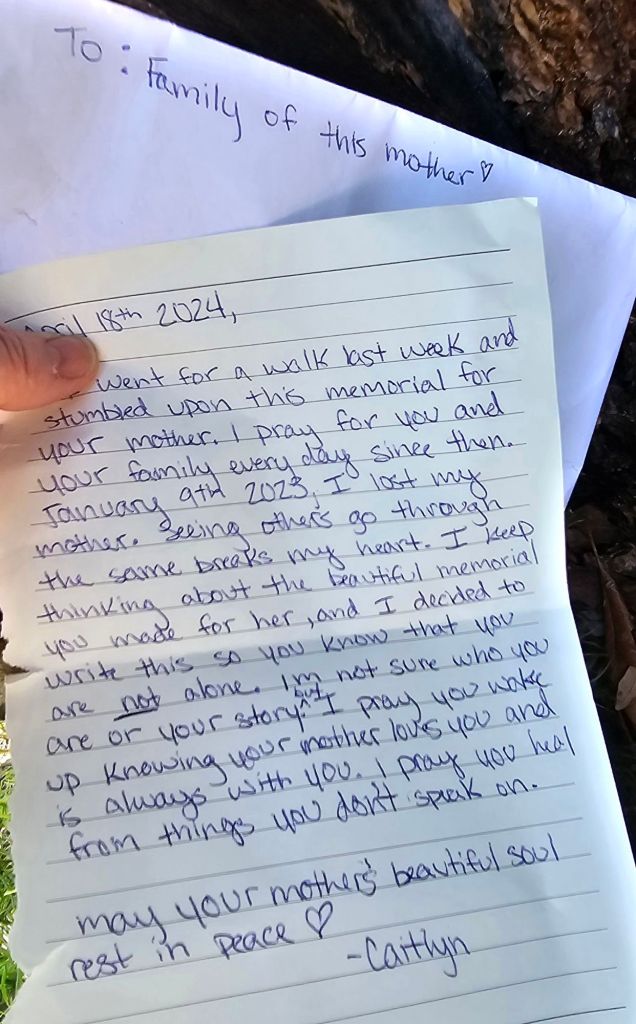 To: Family of this mother ♡
April 18th 2024,
I went for a walk last week and
stumbled upon this memorial for
your mother. I pray for you and
your family every day since then.
January 9th 2023, I lost my
mother. Seeing others go through
the same breaks my heart. I keep
thinking about the beautiful memorial
you made for her, and I decided to
write this so you know that you
are not alone. I'm not sure who you
are or your story, but I pray you wake
up knowing your mother loves you and
is always with you. I pray you heal
from things you don't speak on.
may your mother's beautiful soul
rest in peace ♡
-Caitlyn